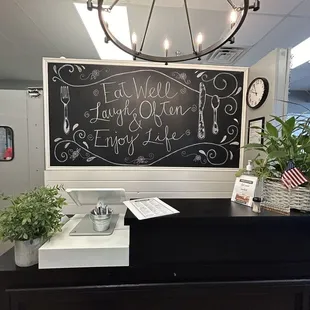 Eat Well
Laugh Often
&
Enjoy Life